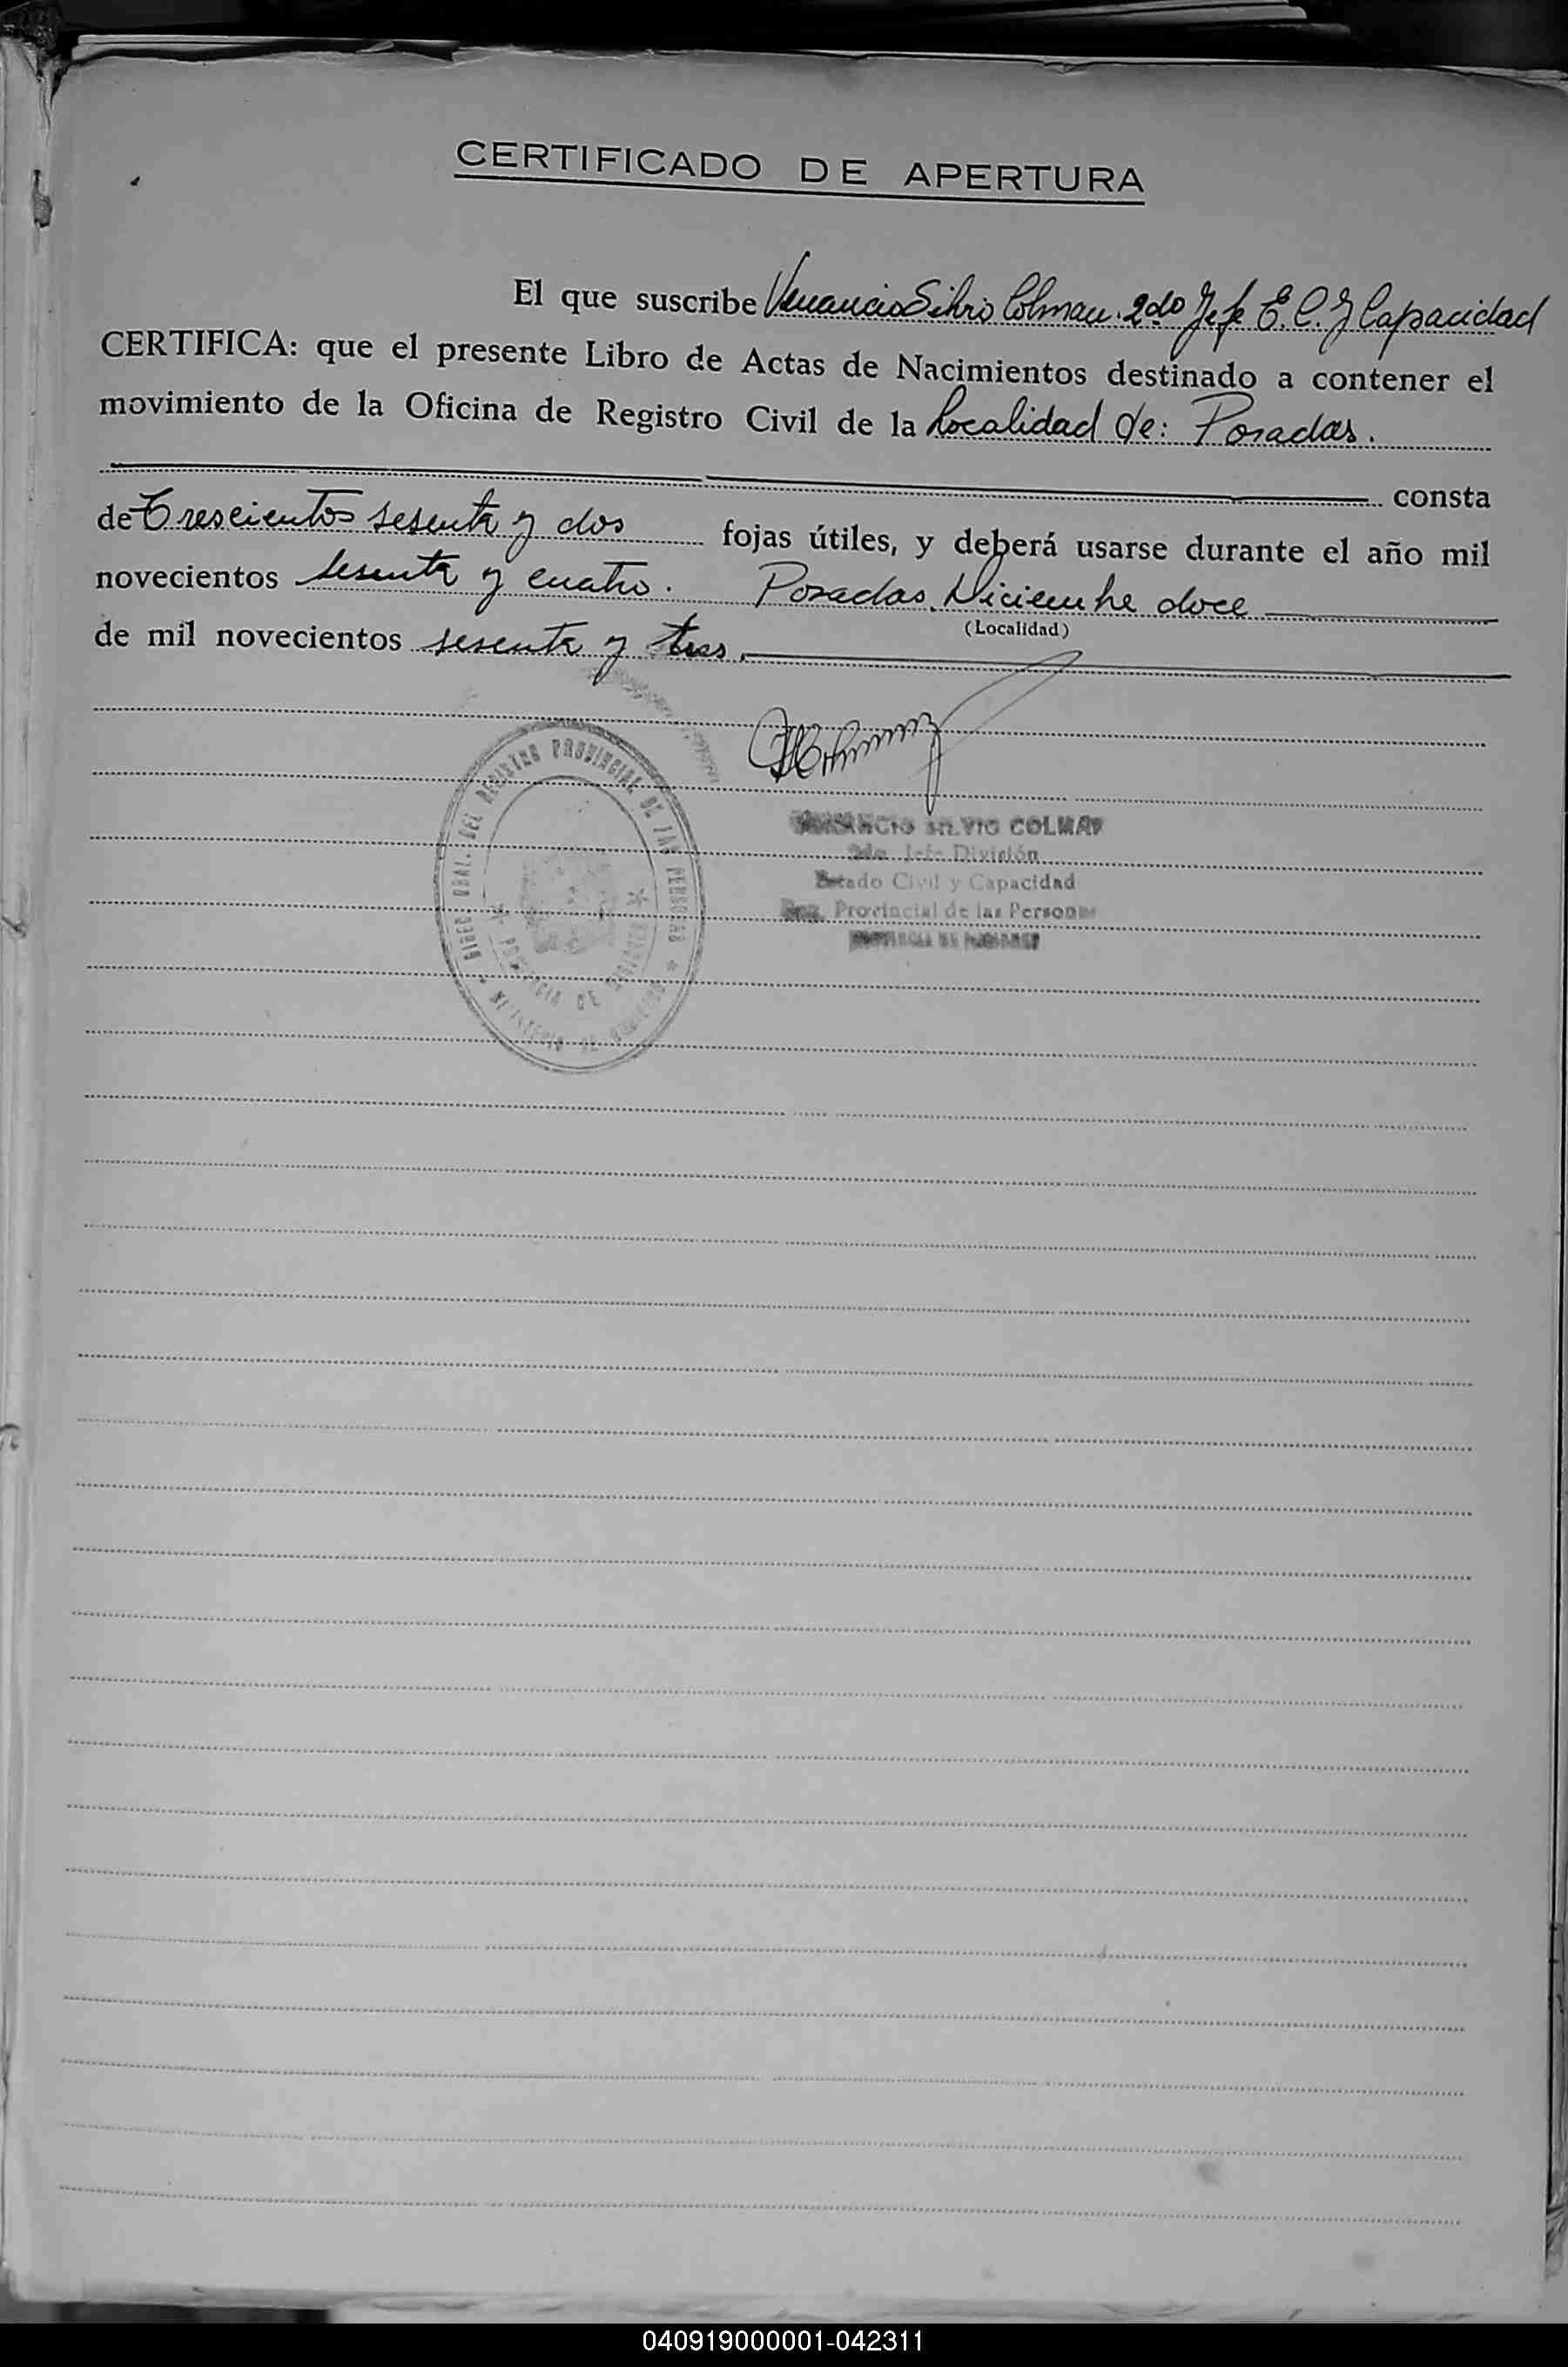 CERTIFICADO DE APERTURA
El que suscribe Venancio Silvio Colman. 2do Jefe E. C. y Capacidad
CERTIFICA: que el presente Libro de Actas de Nacimientos destinado a contener el
movimiento de la Oficina de Registro Civil de la Localidad de: Posadas.
consta
de Trescientos sesenta y dos fojas útiles, y deberá usarse durante el año mil
novecientos sesenta y cuatro. Posadas, Diciembre doce
(Localidad)
de mil novecientos sesenta y tres.
DIREC. GRAL. DEL REGISTRO PROVINCIAL DE LAS PERSONAS
PROVINCIA DE MISIONES
MINISTERIO DE GOBIERNO
VENANCIO SILVIO COLMAN
2do. Jefe División
Estado Civil y Capacidad
Reg. Provincial de las Personas
PROVINCIA DE MISIONES
040919000001-042311